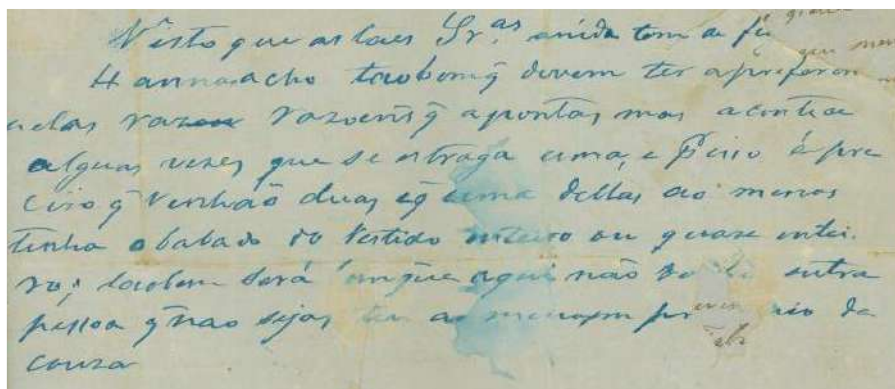 Visto que as taes Sr.as ainda tem de fi
Hanna acho taobem q̃ devem ter a preferen
pelas razoens q̃ apontas, mas acontece
alguas vezes que se estraga uma, e p.r isso é pre
cizo q̃ venhão duas e q̃ uma dellas ao menos
tenha o babado do vestido inteiro ou quaze intei.
ro; taobem será que aqui não outra
pessoa q̃ nao seja
couza